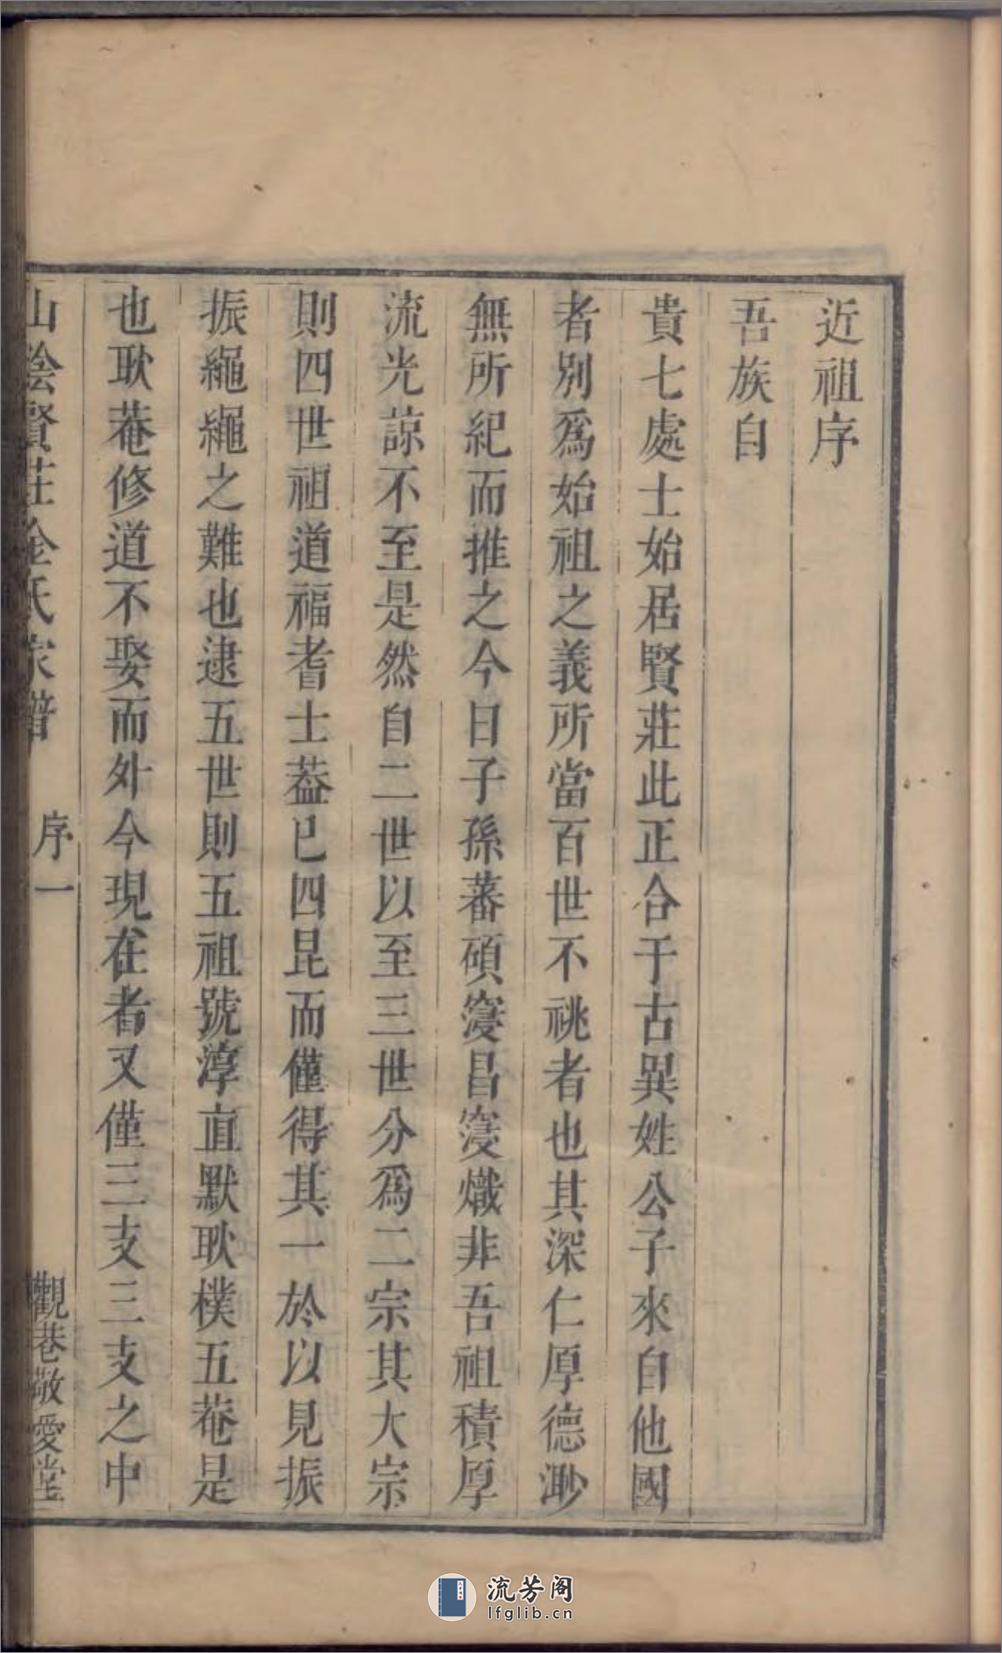 近祖序
吾族自
貴七處士始居賢莊此正合于古異姓公子來自他國
者別爲始祖之義所當百世不祧者也其深仁厚德渺
無所紀而推之今日子孫蕃碩寖昌寖熾非吾祖積厚
流光諒不至是然自二世以至三世分爲二宗其大宗
則四世祖道福耆士葢已四昆而僅得其一於以見振
振繩繩之難也逮五世則五祖號淳直默耿樸五菴是
也耿菴修道不娶而外今現在者又僅三支三支之中
山陰賢莊金氏家譜
序一
觀巷敬愛堂
流芳阁
lfglib.cn